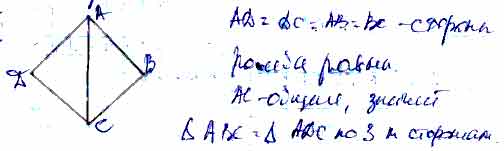 A
AD = DC = AB = BC - стороны
ромба равны.
D
B
AC - общая, значит
C
Δ ABC = Δ ADC по 3 м сторонам.